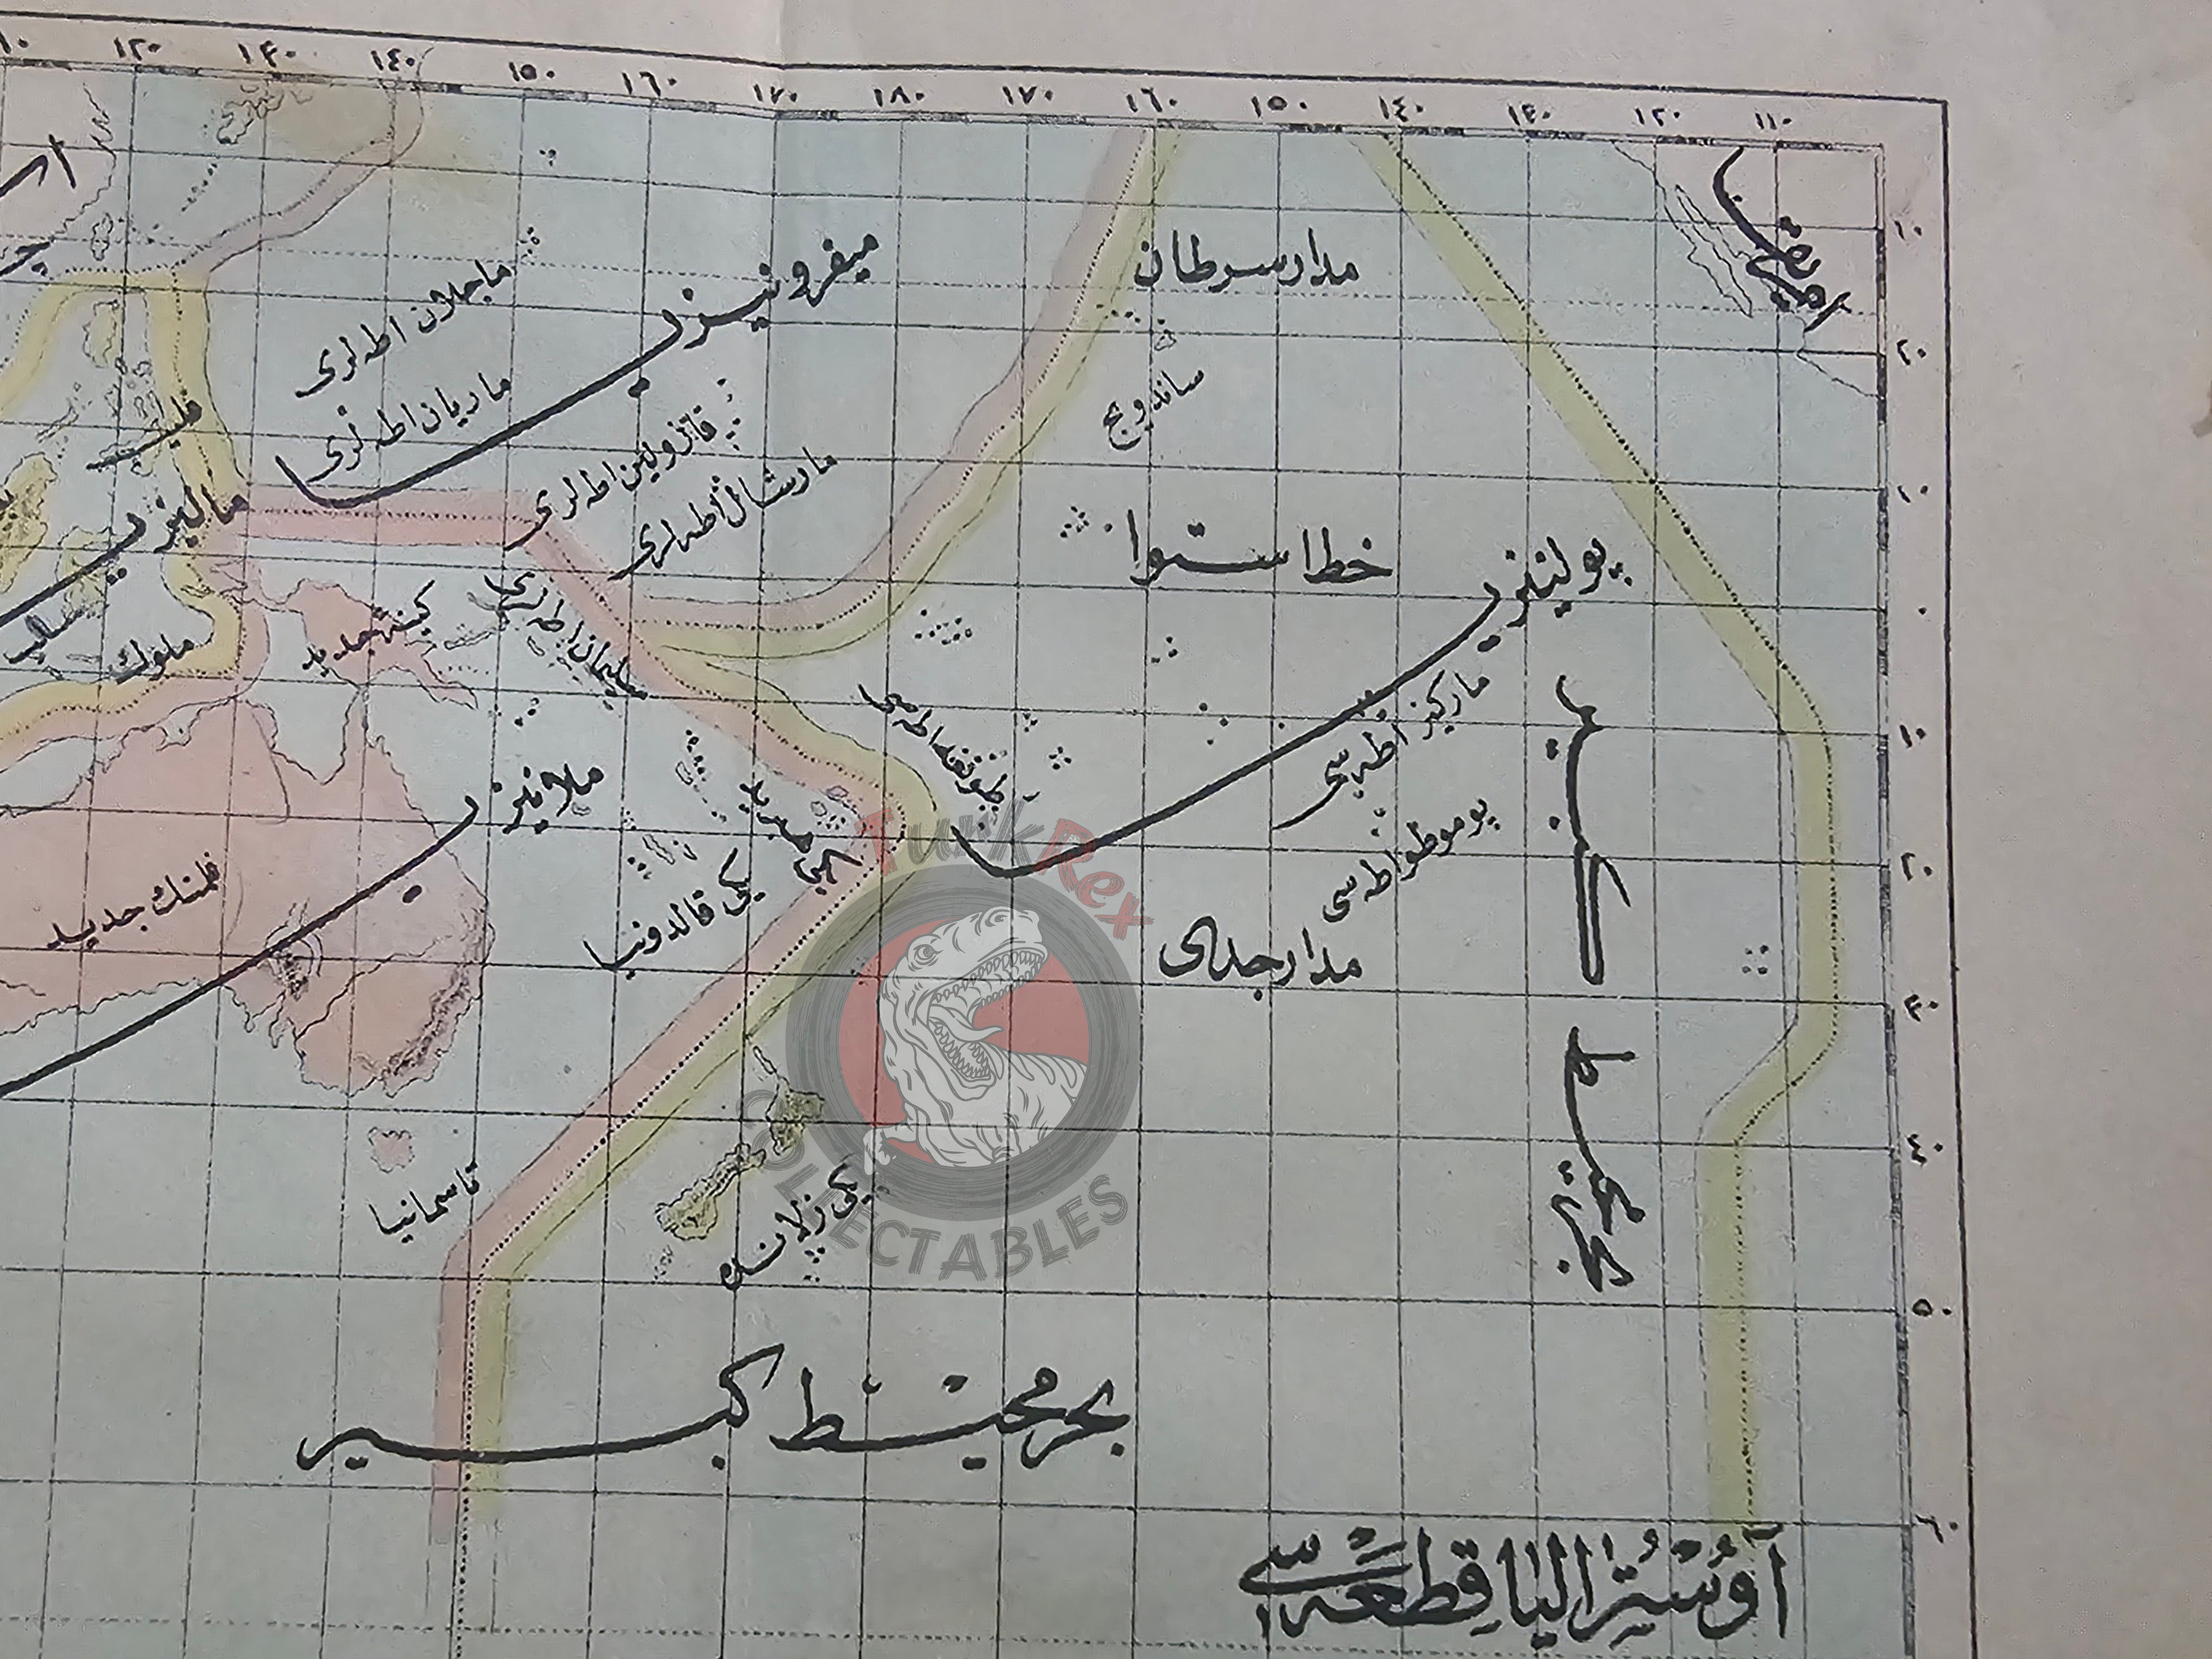 ١٢٠ ١٣٠ ١٤٠ ١٥٠ ١٦٠ ١٧٠ ١٨٠ ١٧٠ ١٦٠ ١٥٠ ١٤٠ ١٣٠ ١٢٠ ١١٠
امريقا
ماجلان اطه لرى
ميقرونيزيا
مدار سرطان
ماريان اطه لرى
فليپ
قارولين اطه لرى
مارشال اطه لرى
ساندويچ
ماليزيا
خط استوا
پولينزيا
كينه جديد
سليمان اطه لرى
ملوك
ماركيز اطه سى
طونغه اطه سى
ملانيزيا
پوموطو اطه سى
يكى قالدونيا
فلمنك جديد
مدار جدى
بحر محيط كبير
تاسمانيا
يكى زلانده
بحر محيط كبير
آوُسْتْراليا قِطعَه سى
١٠
٢٠
١٠
٠
١٠
٢٠
٣٠
٤٠
٥٠
٦٠
TurkRex
COLLECTABLES